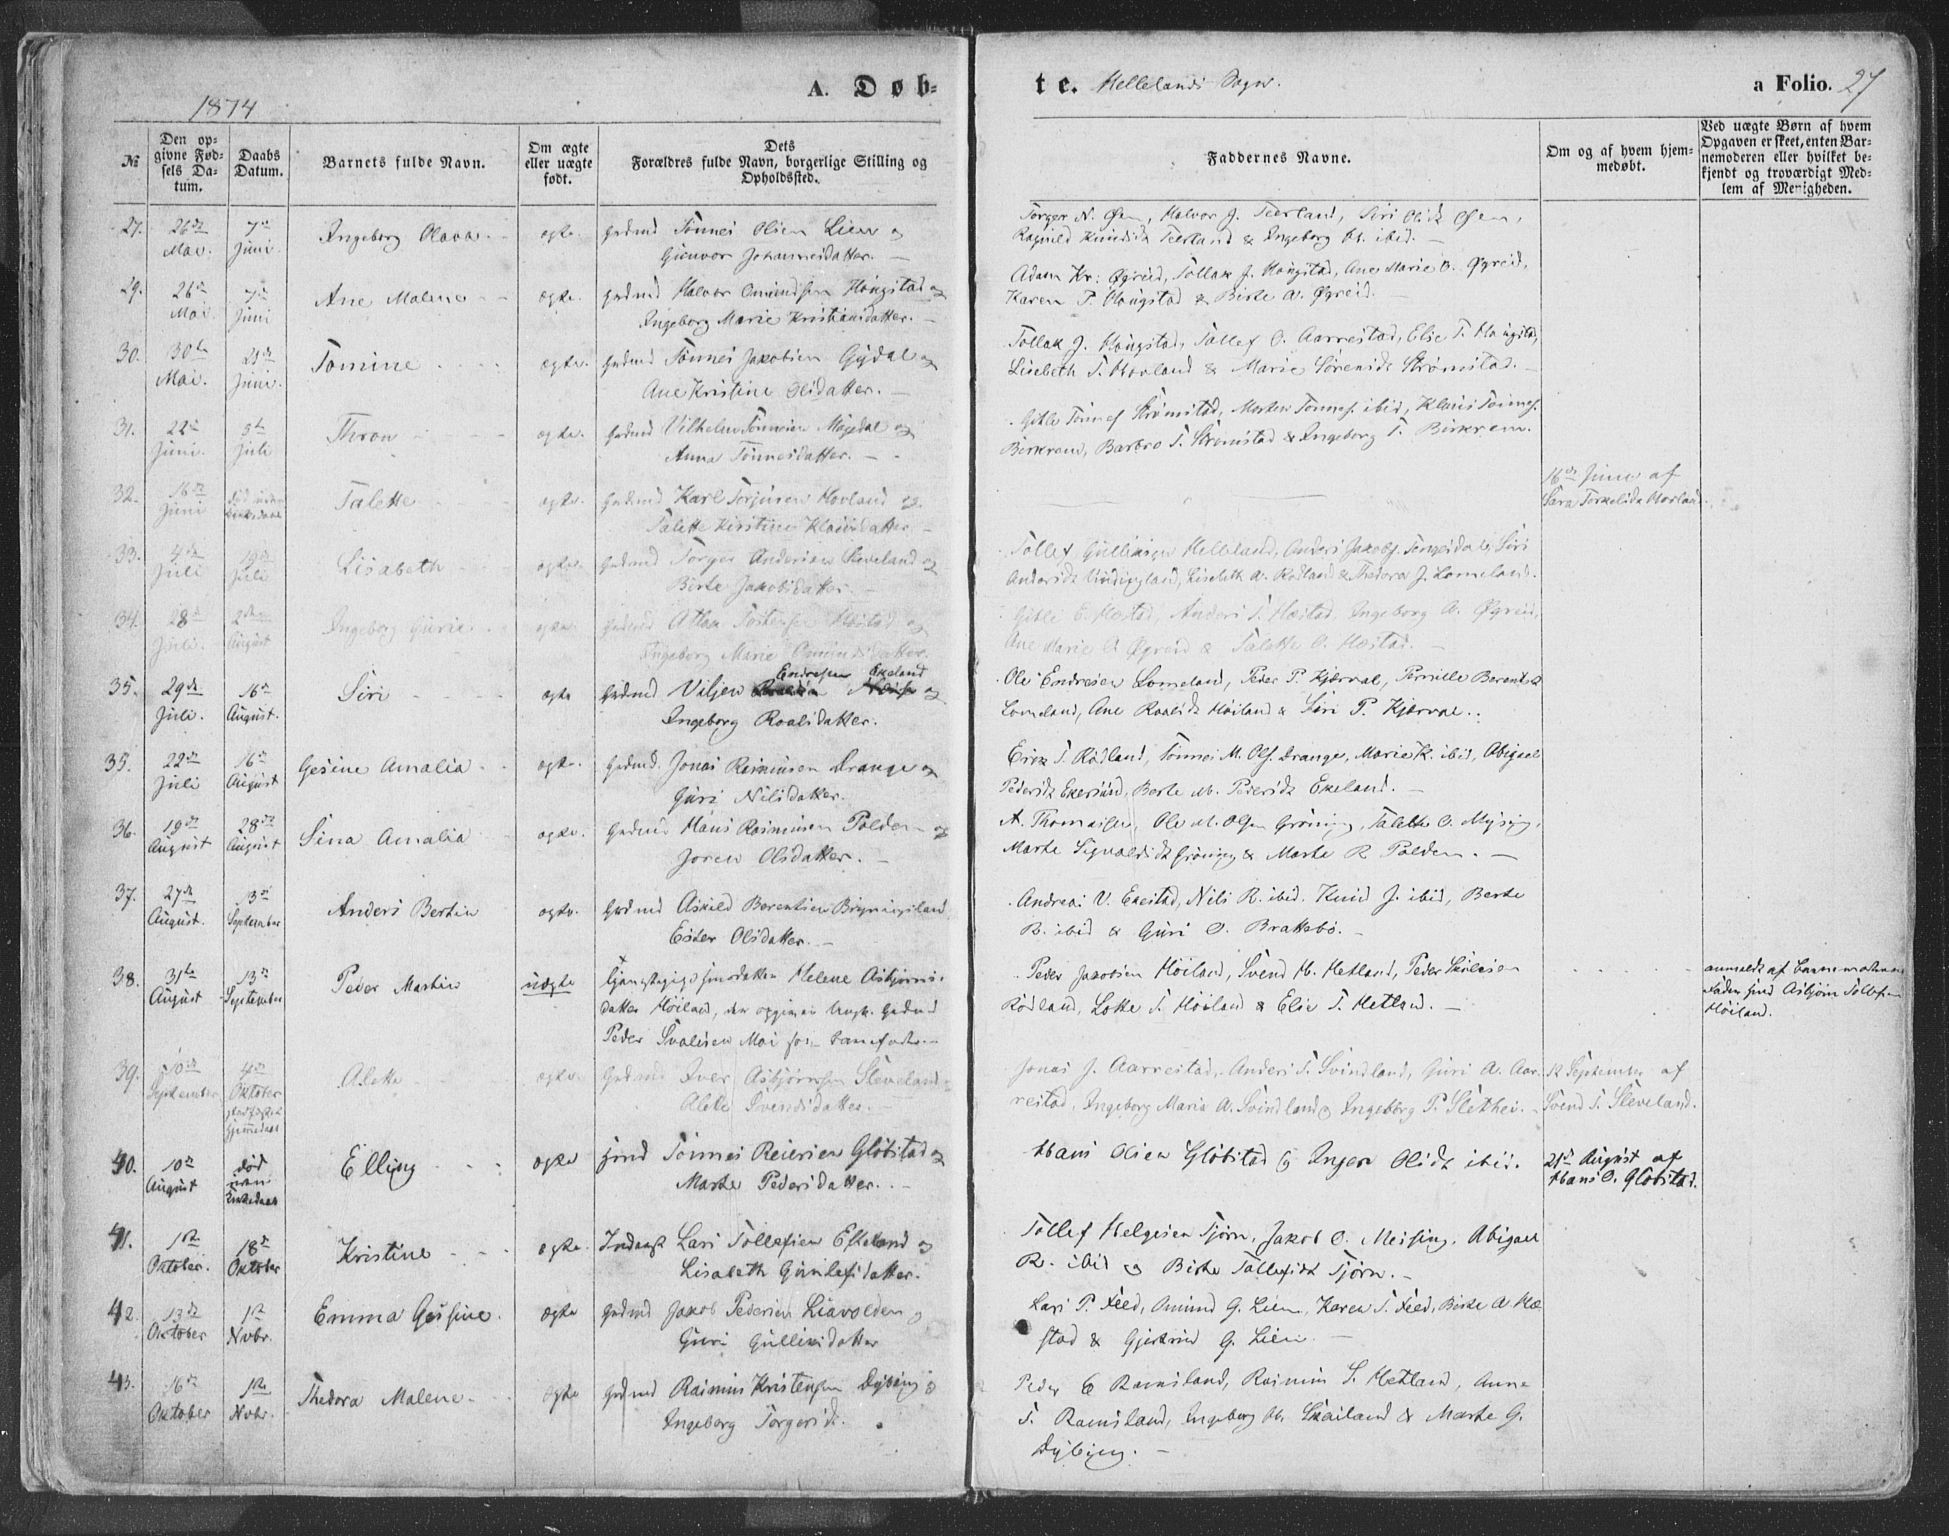 1874
A. Døb-
te. Hellelands Sogn.
a Folio. 27
№
Den opgivne Fødsels Datum.
Daabs Datum.
Barnets fulde Navn.
Om ægte eller uægte født.
Dets Forældres fulde Navn, borgerlige Stilling og Opholdssted.
Faddernes Navne.
Om og af hvem hjemmedøbt.
Ved uægte Børn af hvem Opgaven er skeet, enten Barnemoderen eller hvilket bekjendt og troværdigt Medlem af Menigheden.
27. 26de Mai. 7de Juni Ingeborg Olava ægte. Gaardmd Tønnes Olsen Lien og
Gunvor Johannesdatter.
Torger N. Øen, Halvor J. Teerland, Siri Olsdt Øen,
Ragnild Knudsdt Teerland & Ingeborg M. ibid.
29. 26de Mai 7de Juni Ane Malene ægte. Gaardmd Halvor Omundsen Hougstad og
Ingeborg Marie Kristiansdatter.
Adam Kr: Øgreid, Tollak J. Hougstad, Ane Marie O. Øgreid,
Karen P. Hougstad & Birte A. Øgreid.
30. 30te Mai. 21de Juni Tomine ægte. Gaardmd Tønnes Jakobsen Gydal og
Ane Kristine Olsdatter.
Tollak J. Hougstad, Tollef O. Aarrestad, Elie T. Hougstad,
Lisebeth T. Hovland & Marie Sørensdt Strømstad.
31. 22de Juni. 5te Juli Thron ægte. Gaardmd Vilhelm Tønnesen Mygedal og
Anna Tønnesdatter.
Gitle Tønnes. Strømstad, Morten Tønnes. ibid, Klaus Tønnes.
Birkrem, Barbro T. Strømstad & Ingeborg T. Birkrem.
32. 16de Juni død uden Kirkedaab Talette ægte. Gaardmd Karl Torjusen Hovland og
Talette Kirstine Klausdatter
16de Juni af
Sara Torkelsdt Hovland.
33. 4de Juli 19de Juli Lisabeth ægte. Gaardmd Torger Andersen Skeveland og
Birte Jakobsdatter.
Tollef Gulliksen Helleland, Anders Jakobs. Tengesdal, Siri
Andersdt Vindingland, Lisebeth A. Rødland & Thedora J. Lomeland.
34. 28de Juli. 2den August Ingeborg Gurie ægte. Gaardmd Atlak Tostensen Hæstad og
Ingeborg Marie Omundsdatter.
Gitle E. Hæstad, Anders T. Hæstad, Ingeborg A. Øgreid,
Ane Marie O Øgreid & Talette O. Hæstad.
35. 29de Juli. 16de August. Siri ægte Gaardmd Viljen Endresen Ekeland og
Ingeborg Roalsdatter.
Ole Endresen Lomeland, Peder P. Kjærval, Pernille Berentsdt
Lomeland, Ane Roalsdt Høiland & Siri P. Kjærval.
35. 22de Juli 16de August Gesine Amalia ægte. Gaardmd. Jonas Rasmusen Drange og
Guri Nilsdatter.
Eirik T. Rødland, Tønnes M. Ols. Drange, Marie K. ibid, Abigael
Pedersdt Ekersund, Berte M. Pedersdt Ekeland.
36. 19de August 28de August Sina Amalia ægte. Gaardmd Hans Rasmusen Polden og
Joren Olsdatter.
A. Thomassen, Ole M. Olsen Grøning, Talette O. Mysing,
Marte Sigvaldsdt Grøning & Marte R Polden.
37. 27de August. 13de September Anders Bertin ægte. Gaardmd Askild Berentsen Bryningsland
Ester Olsdatter.
Andreas V. Ekestad, Nils R. ibid. Knud J. ibid, Berte
R. ibid & Guri O. Brattebø.
38. 31te August 13de September Peder Martin uægte Tjenestepige Helene Asbjørns-
datter Høiland, der opgiver Gaardmd
Peder Svalesen Moi som Barnefader.
Peder Jakobsen Høiland, Svend H. Hetland, Peder Skulesen
Rødland, Lotte T. Høiland & Elie T. Hetland.
anmeldt af Barnemoderens
Fader Asbjørn Tollefsen
Høiland.
39. 10de September 4de Oktober stadfæstet Hjemmedaab Alette ægte. Gaardmd Iver Asbjørnsen Sleveland
Alete Svendsdatter.
Jonas J. Aarrestad, Anders T. Svindland, Guri A. Aar-
restad, Ingeborg Maria A. Svindland og Ingeborg P. Slethei.
12 September af
Svend T. Sleveland.
40. 10de August død uden Kirkedaab Elling ægte Tønnes Reiersen Gløbstad og
Marte Pedersdatter.
Hans Olsen Gløbstad og Inger Olsdt ibid.
21de August af
Hans O. Gløbstad.
41. 1ste Oktober. 18de Oktober Kristine ægte. Inderst Lars Tollefsen Efteland og
Lisabeth Gunlefsdatter.
Tollef Helgesen Tjørn, Jakob O. Meising, Abigael
R. ibid og Birte Tollefsdt Tjørn.
42. 13de Oktober 1ste Novbr. Emma Gesine. ægte Gaardmd Jakob Pedersen Liavolden og
Guri Gulliksdatter
Lars P. Feed, Omund G. Lien, Karen T. Feed, Birte A. Hæ-
stad & Gjertrud G. Lien.
43. 16de Oktober 1ste Novbr. Thedora Malene. ægte Gaardmd Rasmus Kristensen Dybing og
Ingeborg Torgersdt.
Peder E Ramsland, Rasmus S. Hetland, Anne
T. Ramsland, Ingeborg M. Skailand & Marte G.
Dybing.